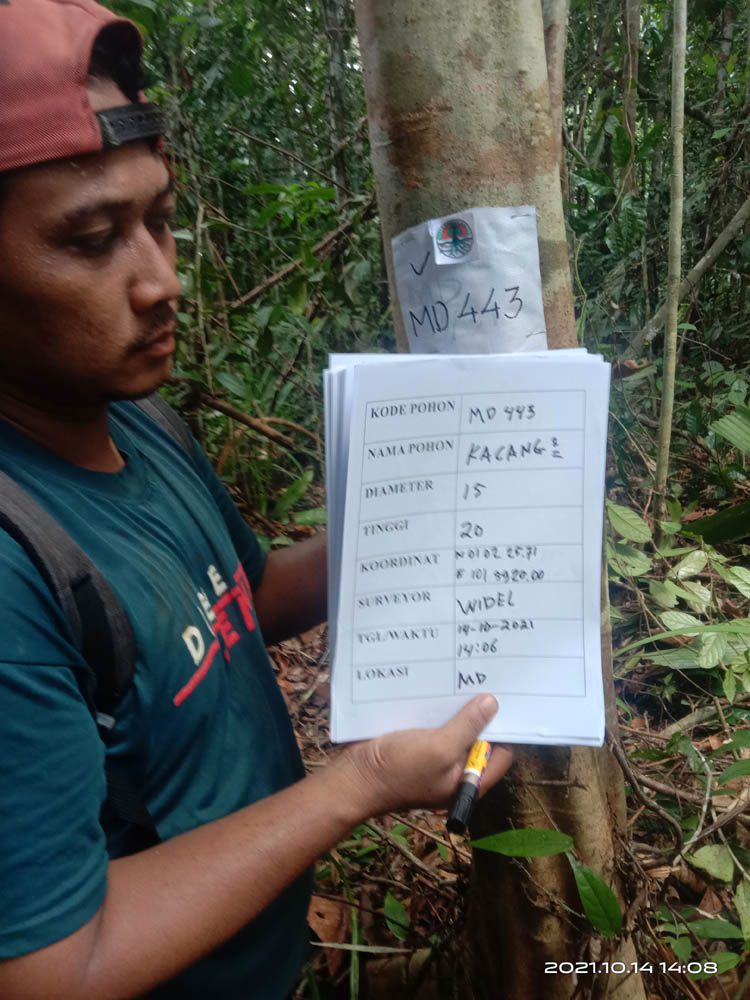 MD 443
KODE POHON MD 443
NAMA POHON KACANG 2
DIAMETER 15
TINGGI 20
KOORDINAT N 01 02 25.71
E 101 3920.00
SURVEYOR WIDEL
TGL/WAKTU 14-10-2021
14:06
LOKASI MD
2021.10.14 14:08